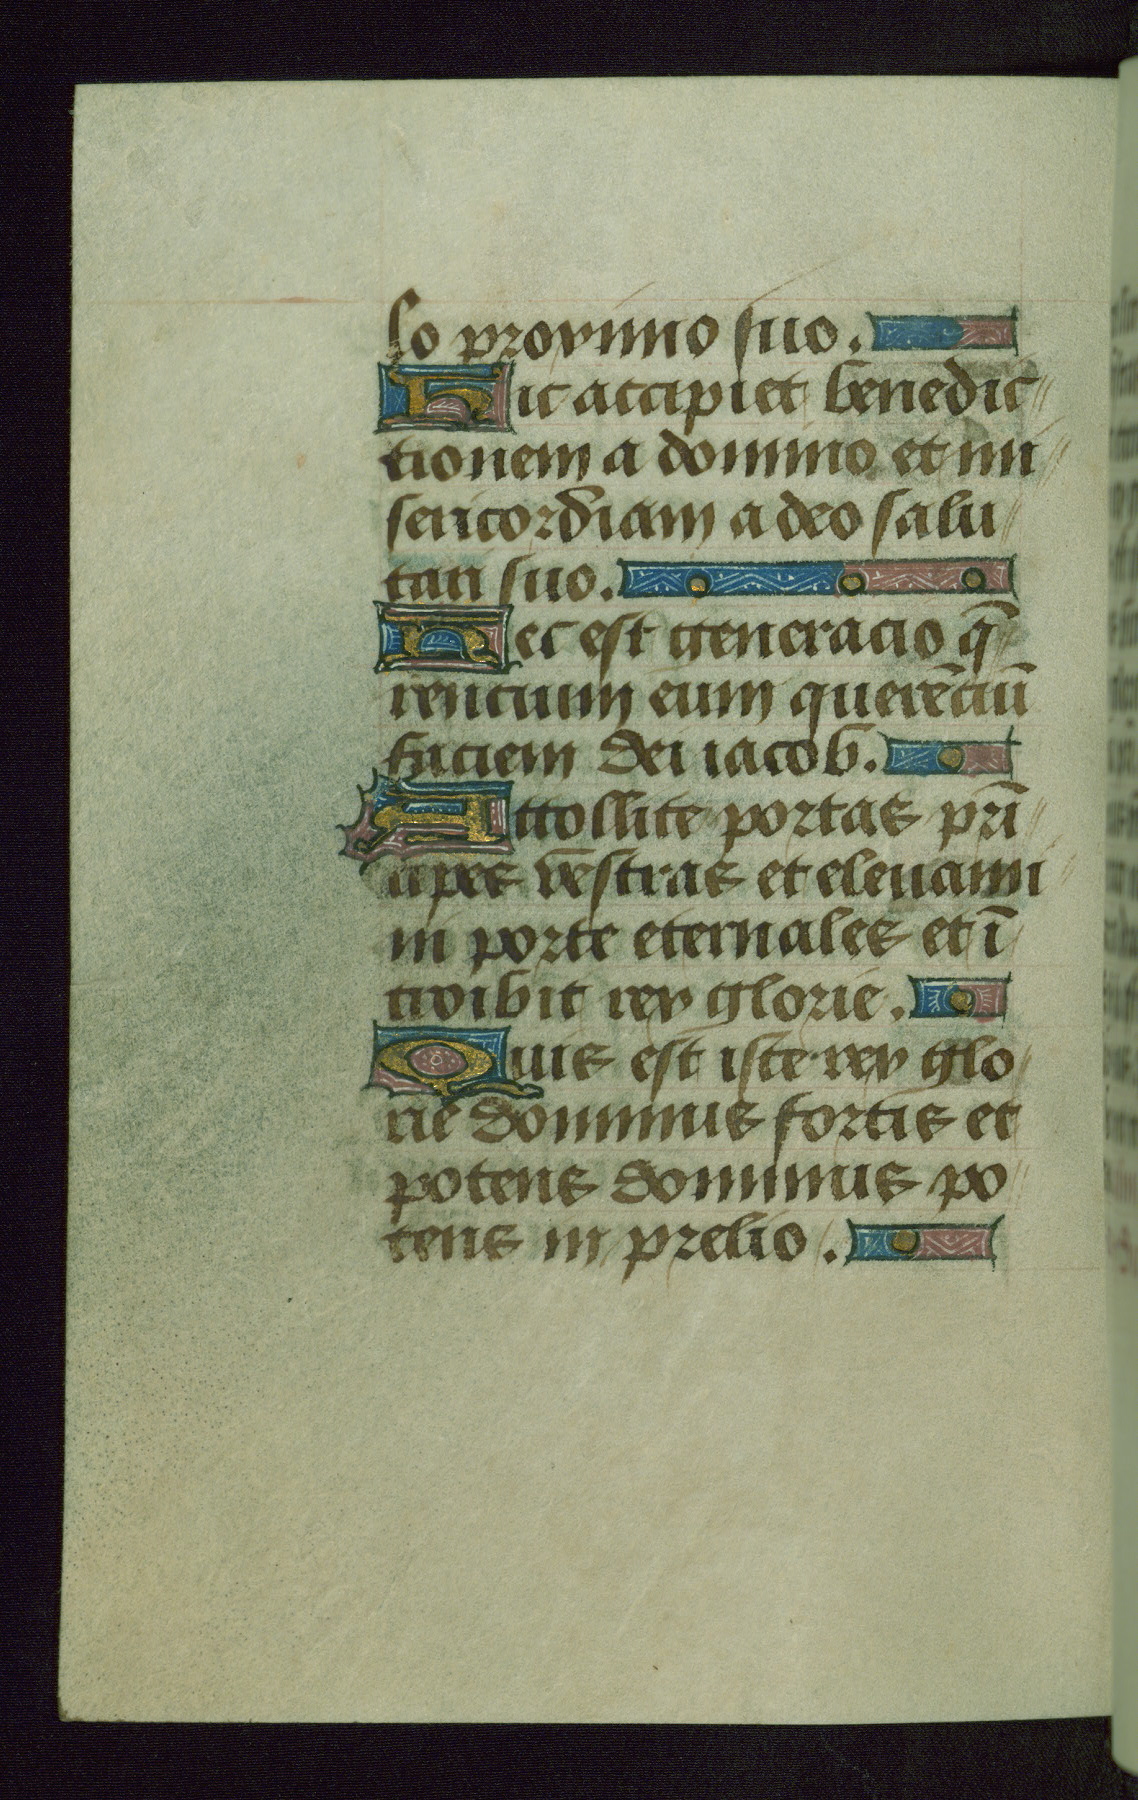 so proximo suo.
Hic accipiet benedic
tionem a domino et mi
sericordiam a deo salu
tari suo.
Hec est generacio q̄
rencium eum querēciū
faciem dei iacob.
Attollite portas prī
cipes vestras et eleuami
ni porte eternales et ī
troibit rex glorie.
Quis est iste rex glo
rie dominus fortis et
potens dominus po
tens in prelio.